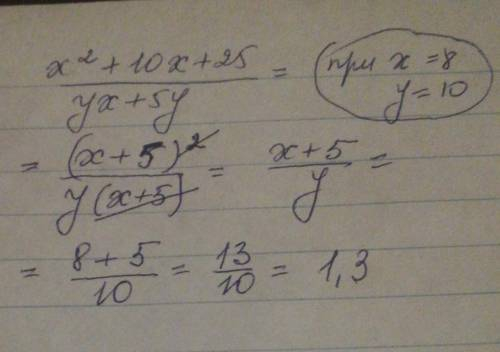 (x² + 10x + 25)/(yx + 5y) = при x = 8
y = 10
= (x + 5)²/(y(x+5)) = (x + 5)/y =
= (8 + 5)/10 = 13/10 = 1,3